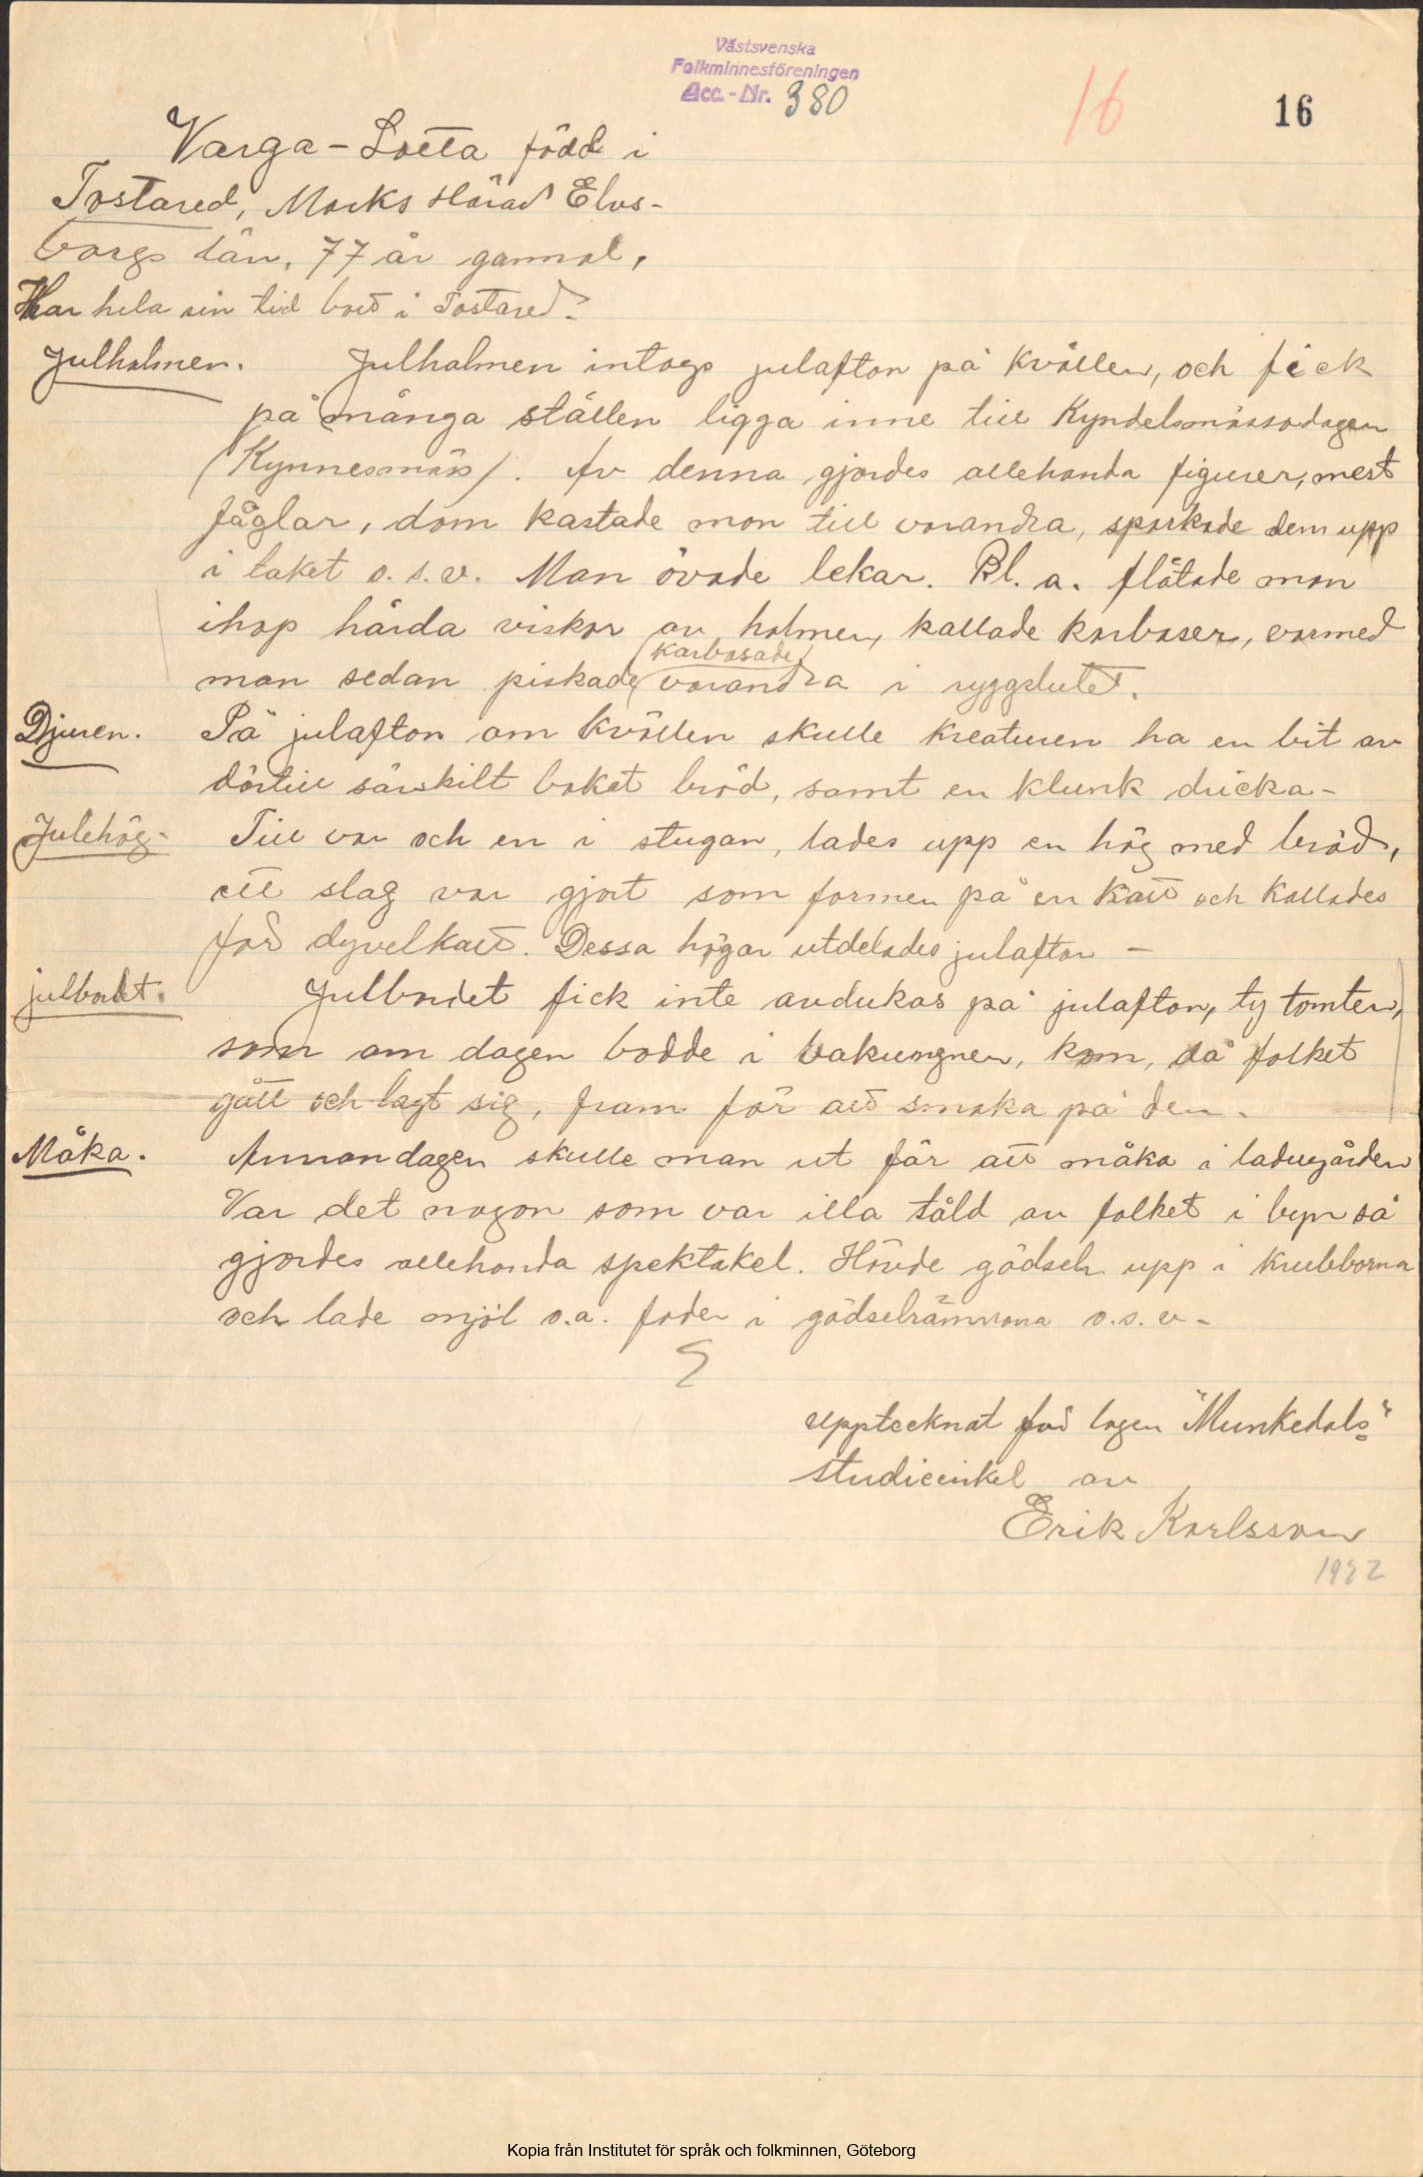 Västsvenska
Folkminnesföreningen
Acc.-Nr. 380
16
16
Varga-Lotta född i
Tostared, Marks Härad Elvs-
borgs län, 77 år gammal,
Har hela sin tid bott i Tostared.
Julhalmen. Julhalmen intogs julafton på kvällen, och fick
på många ställen ligga inne till Kyndelsmässodagen
(Kynnesmäss). Av denna gjordes allehanda figurer, mest
fåglar, dom kastade man till varandra, sparkade dem upp
i taket o.s.v. Man övade lekar. Bl.a. flätade man
ihop hårda viskor av halmen, kallade karbaser, varmed
(karbasade)
man sedan piskade varandra i ryggslutet.
Djuren. På julafton om kvällen skulle kreaturen ha en bit av
därtill särskilt bakat bröd, samt en klunk dricka-
Julehög- Till var och en i stugan, lades upp en hög med bröd,
ett slag var gjort som formen på en katt och kallades
för dyvelkatt. Dessa högar utdelades julafton -
julbordet. Julbordet fick inte avdukas på julafton, ty tomten,
som om dagen bodde i bakungnen, kom, då folket
gått och lagt sig, fram för att smaka på den.
Måka. Annandagen skulle man ut för att måka i ladugården
Var det nogon som var illa tåld av folket i byn så
gjordes allehanda spektakel. Hävde gödseln upp i krubborna
och lade mjöl o.a. foder i gödselrännorna o.s.v-
Upptecknat för logen "Munkedals"
studiecirkel av
Erik Karlsson
1932
Kopia från Institutet för språk och folkminnen, Göteborg